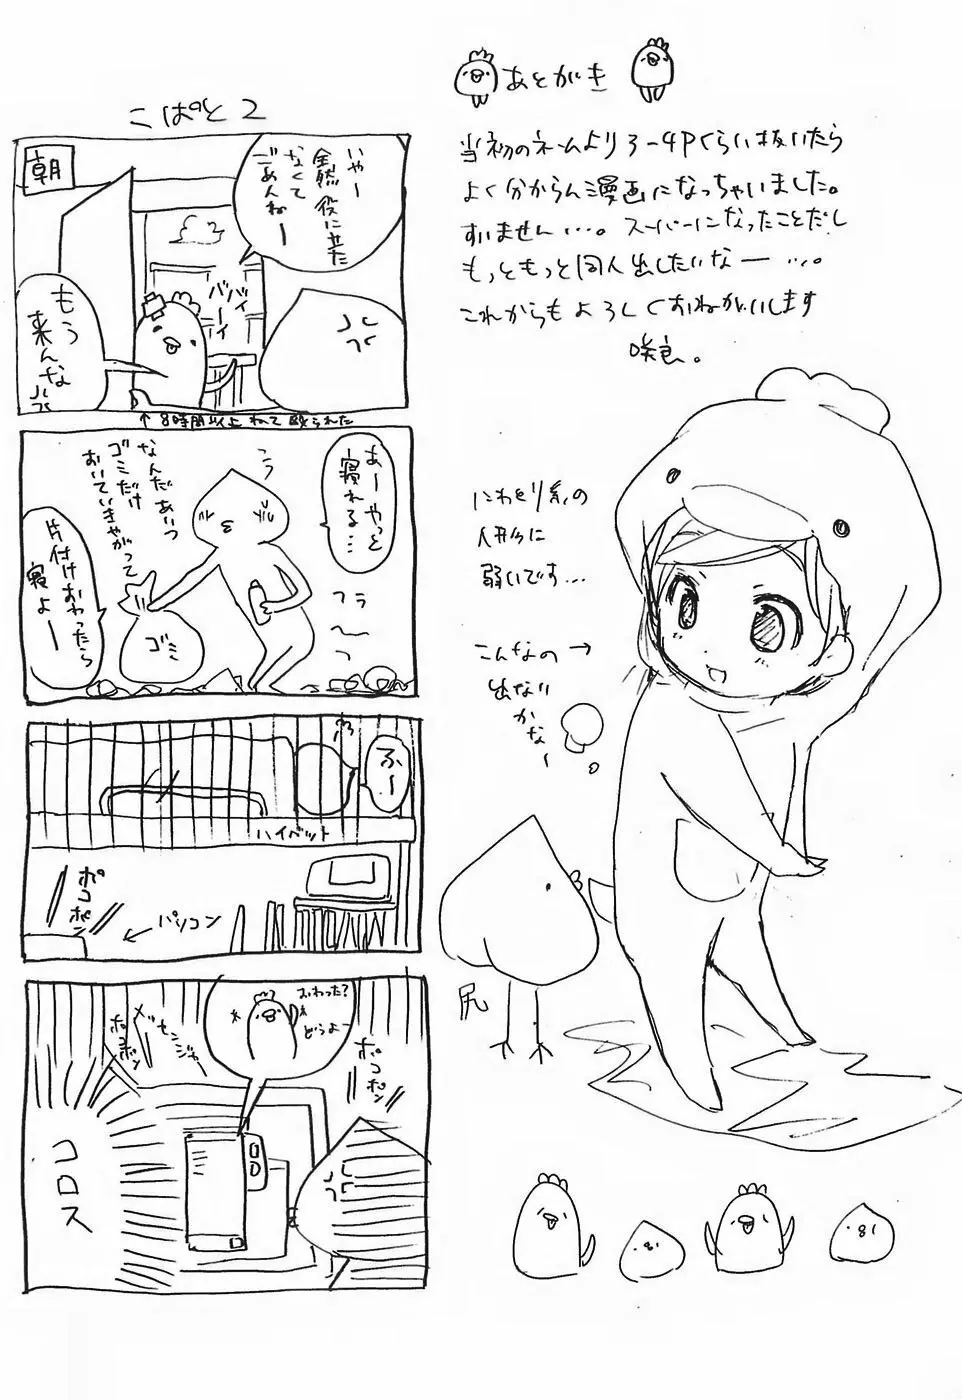 あとがき
当初のネームより3-4Pくらい抜いたら
よく分からん漫画になっちゃいました。
すいません…。スーパーになったことだし
もっともっと同人出したいなー…。
これからもよろしくおねがいします
咲良。
にわとり系の
人形に
弱いです…
こんなの→
出ないり
かなー
尻
こぱと2
朝
いやー
全然役に立た
なくて
ごめんねー
ババイ
ーイ
もう
来んな
↑8時間以上ねて殴られた
あーやっと
寝れる…
こう
なんだあいつ
ゴミだけ
おいていきやがって
片付けおわったら
寝よー
ゴミ
フラ
〜っ
ふー
ハイベット
ポコポン
←パソコン
おわった?
どうよー
メッセンジャ
ポコポン
ポコポン
コロス